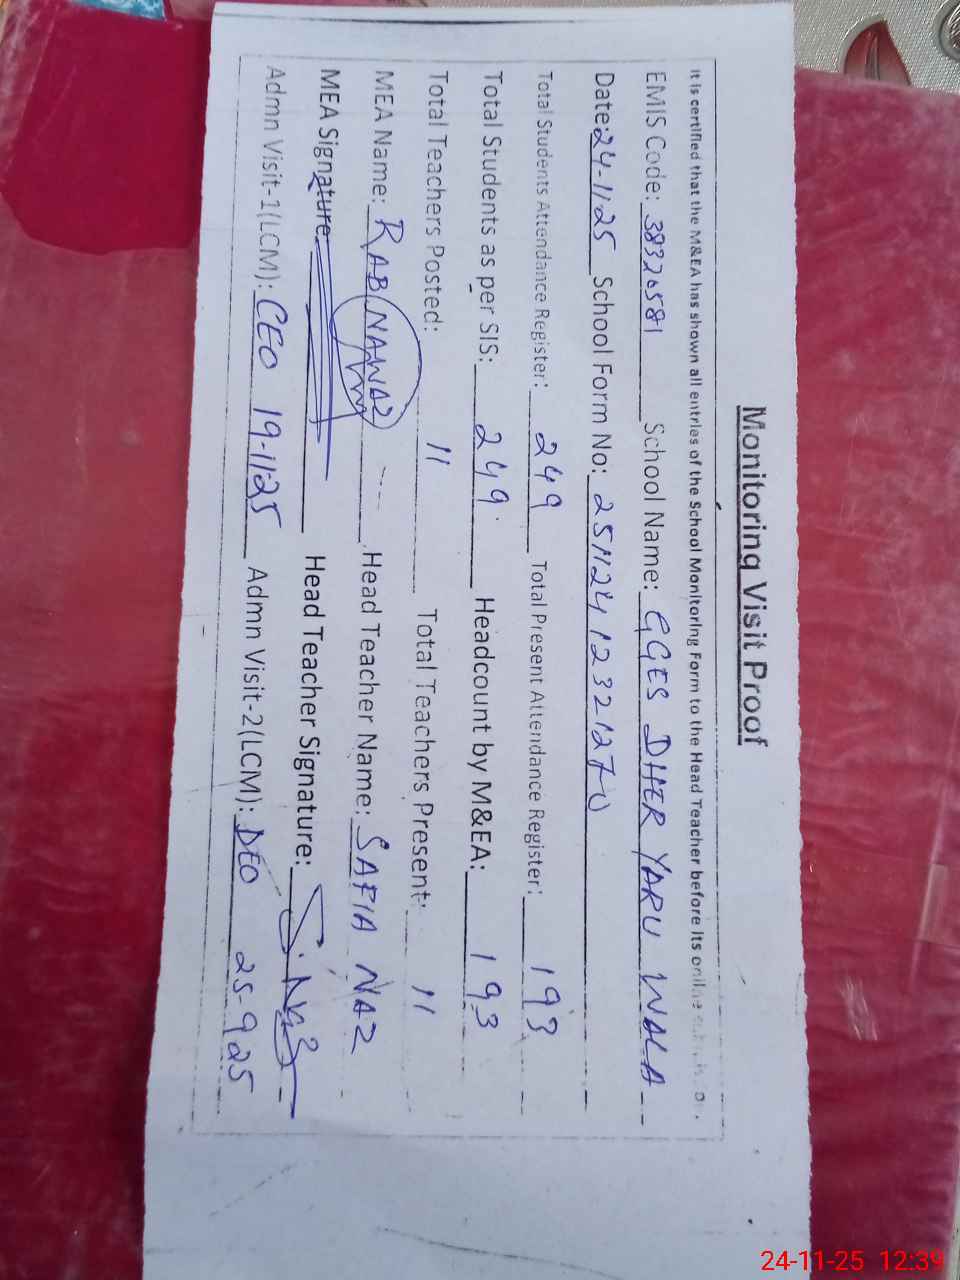 Monitoring Visit Proof
It is certified that the M&EA has shown all entries of the School Monitoring Form to the Head Teacher before its online
EMIS Code: 38320581 School Name: GGES DHER YARU WALA
Date: 24-11-25 School Form No: 25112412321270
Total Students Attendance Register: 249 Total Present Attendance Register: 193
Total Students as per SIS: 249 Headcount by M&EA: 193
Total Teachers Posted: 11 Total Teachers Present: 11
MEA Name: RAB NAWAZ Head Teacher Name: SAFIA NAZ
MEA Signature: Head Teacher Signature: S. Naz
Admn Visit-1(LCM): CEO 19-11-25 Admn Visit-2(LCM): DEO 25-9-25
24-11-25 12:39